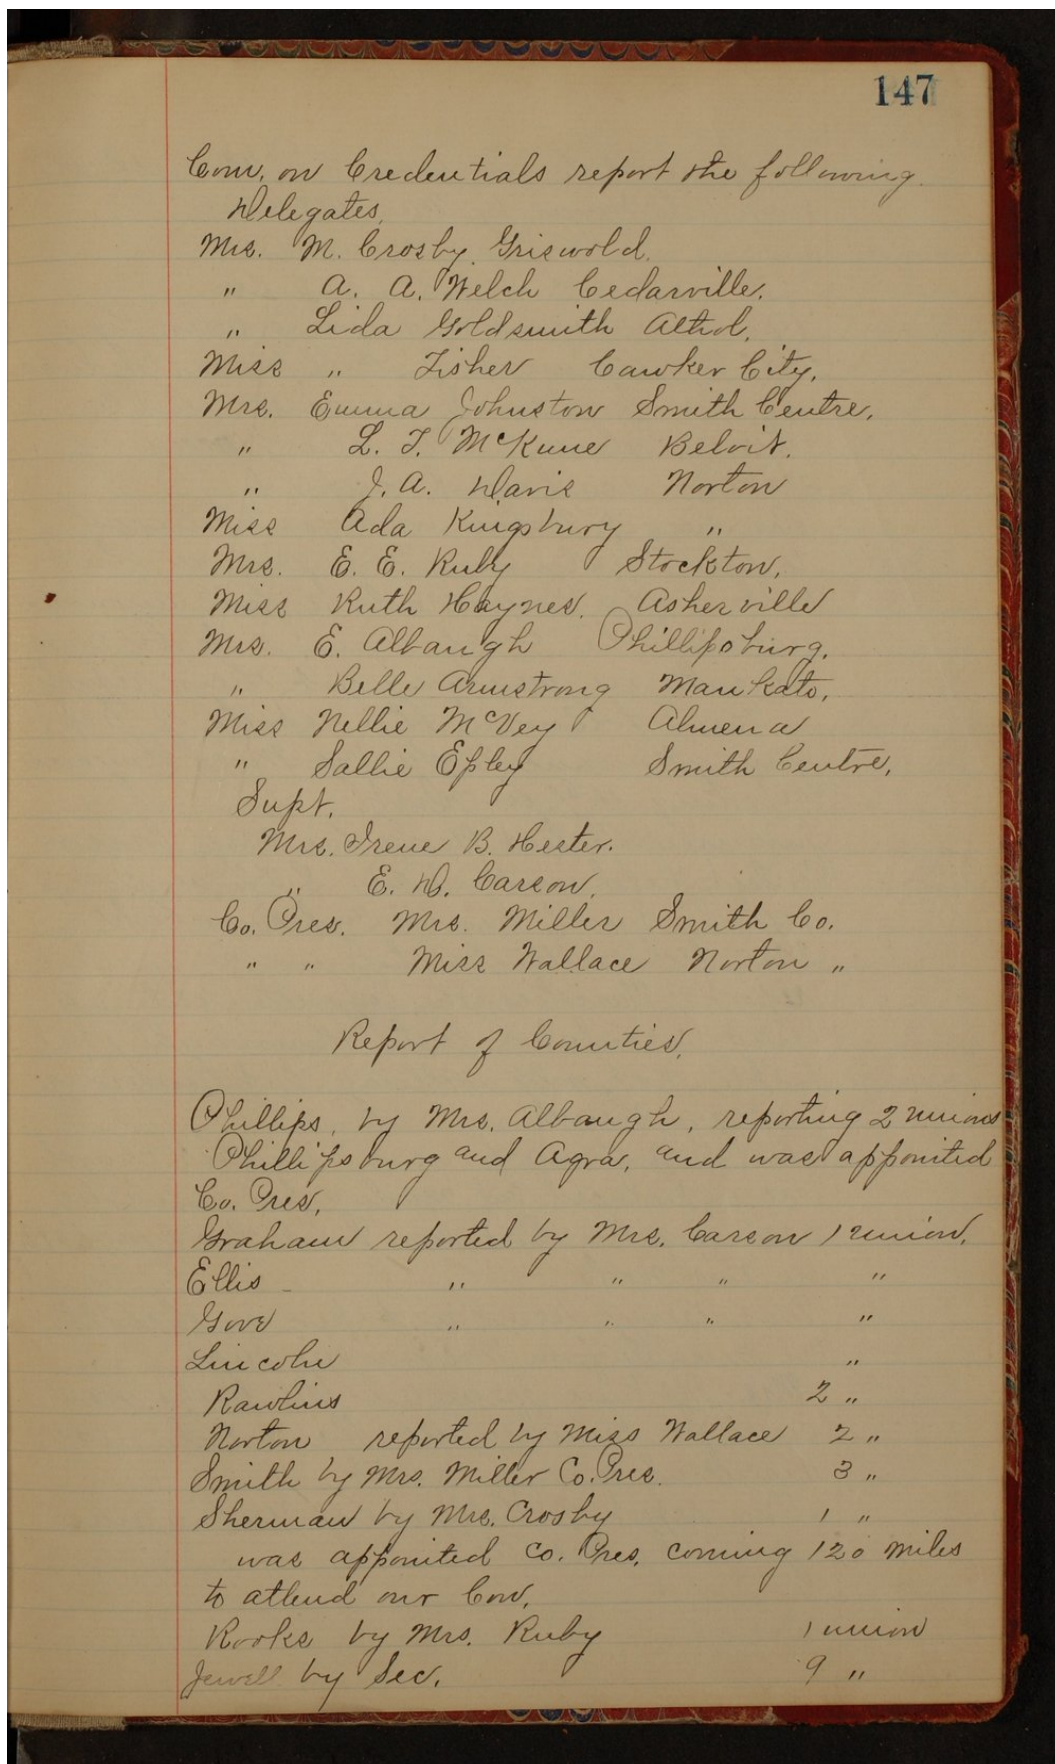 147
Com. on Credentials report the following
Delegates,
Mrs. M. Crosby, Griswold.
" A. A. Welch Cedarville.
" Lida Goldsmith Athol.
Miss " Fisher Cawker City.
Mrs. Emma Johnston Smith Centre,
" L. T. McKune Beloit.
" J. A. Davis Norton
Miss Ada Kingsbury "
Mrs. E. E. Ruby Stockton.
Miss Ruth Haynes. Asherville
Mrs. E. Albaugh Phillipsburg.
" Belle Armstrong Mankato.
Miss Nellie McVey Almena
" Sallie Epley Smith Centre,
Supt.
Mrs. Irene B. Hester.
" E. D. Carson.
Co. Pres. Mrs. Miller Smith Co.
" " Miss Wallace Norton "
Report of Counties.
Phillips, by Mrs. Albaugh, reporting 2 unions
Phillipsburg and Agra, and was appointed
Co. Pres,
Graham reported by Mrs. Carson 1 union.
Ellis " " " "
Gove " " " "
Lincoln "
Rawlins 2 "
Norton reported by Miss Wallace 2 "
Smith by Mrs. Miller Co. Pres. 3 "
Sherman by Mrs. Crosby 1 "
was appointed Co. Pres. coming 120 miles
to attend our Con.
Rooks by Mrs. Ruby 1 union
Jewell by Sec. 9 "